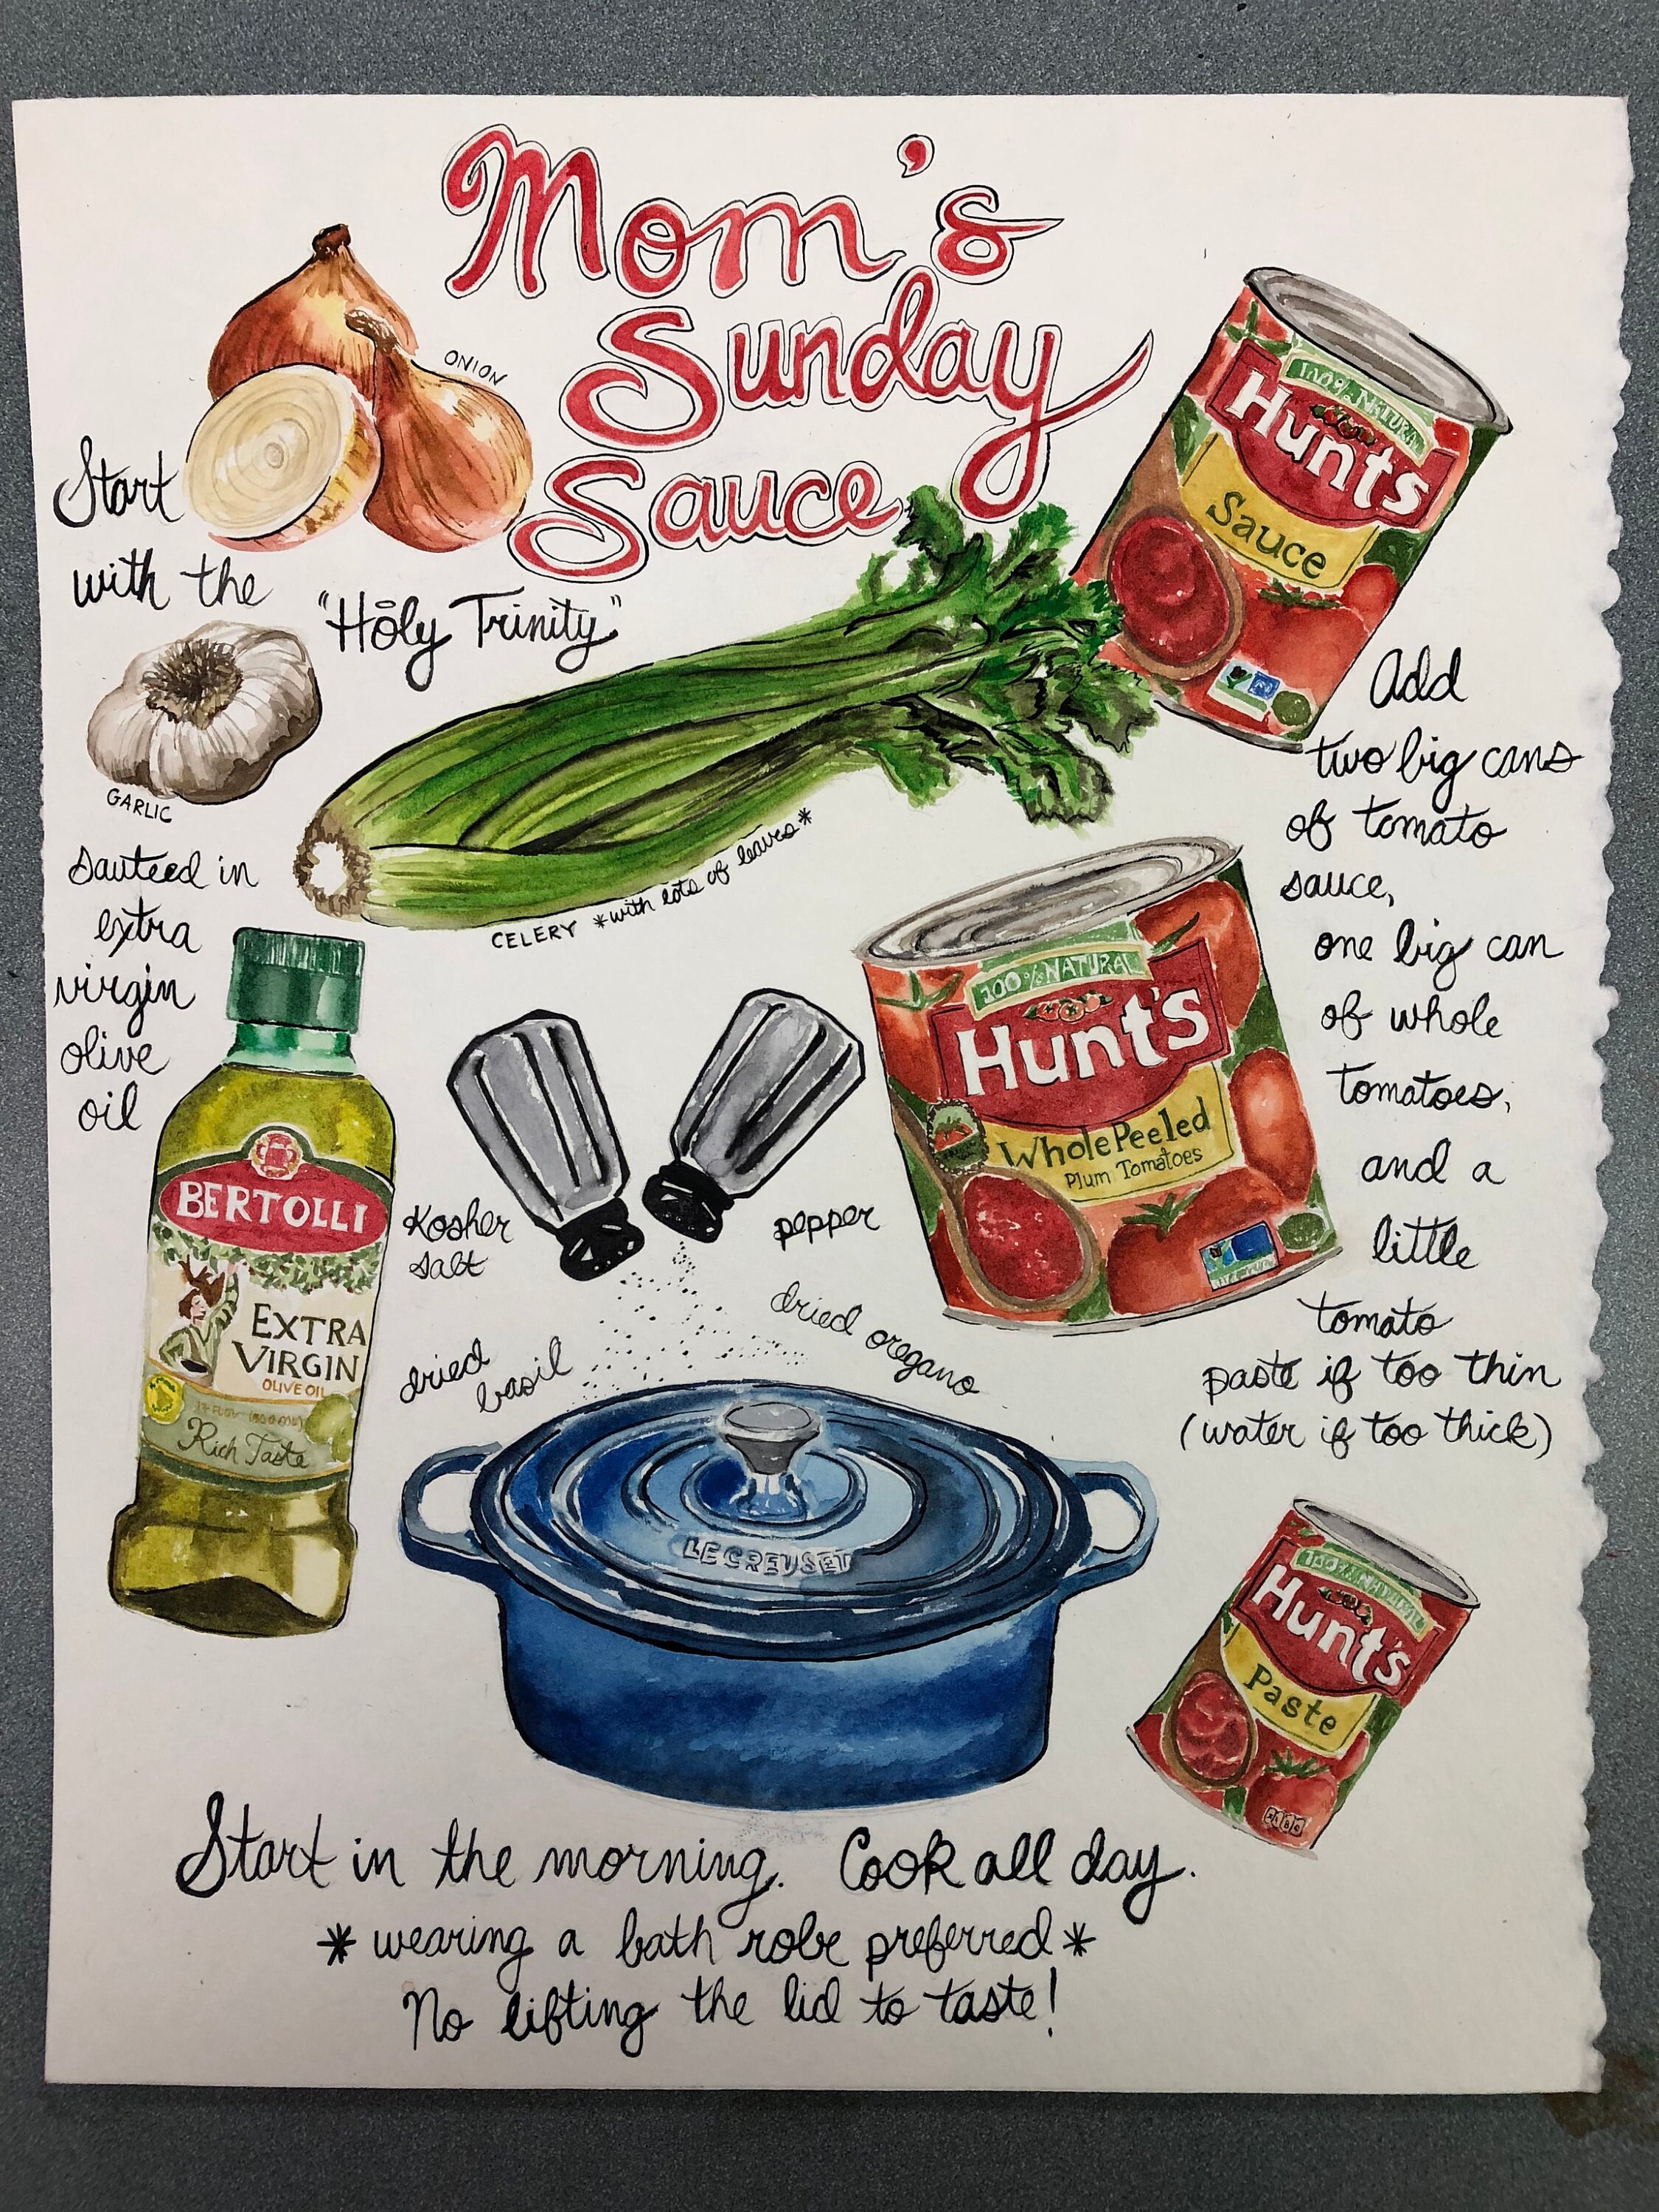 Mom's
Sunday
Sauce
ONION
Start
with the
"Holy Trinity"
GARLIC
CELERY *with lots of leaves*
sauteed in
extra
virgin
olive
oil
BERTOLLI
EXTRA
VIRGIN
OLIVE OIL
Rich Taste
Kosher
salt
pepper
dried
basil
dried oregano
LE CREUSET
100% NATURAL
Hunt's
Sauce
Add
two big cans
of tomato
sauce,
one big can
of whole
tomatoes,
and a
little
tomato
paste if too thin
(water if too thick)
100% NATURAL
Hunt's
Whole Peeled
Plum Tomatoes
100% NATURAL
Hunt's
Paste
Start in the morning. Cook all day.
*wearing a bath robe preferred*
No lifting the lid to taste!